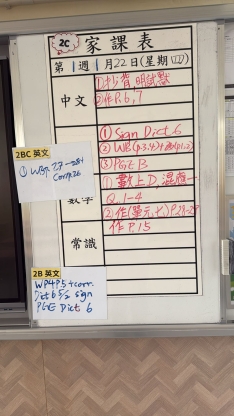 2C 家課表
第1週1月22日(星期四)
中文
①抄背,明試默
②作P.6,7
① Sign Dict 6
② WB (p.3,4)+
③ PGE B
2BC 英文
① WB p.27-28+
Corr p.26
數學
Q.1-4
②作(單元七)P.28-29
常識
作P.15
2B 英文
WP4P5+corr.
Dict 6 sign
PGE Dict 6